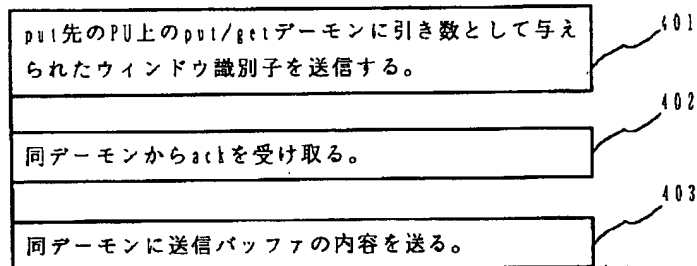 put先のPU上のput/getデーモンに引き数として与え
られたウィンドウ識別子を送信する。
401
402
同デーモンからackを受け取る。
403
同デーモンに送信バッファの内容を送る。